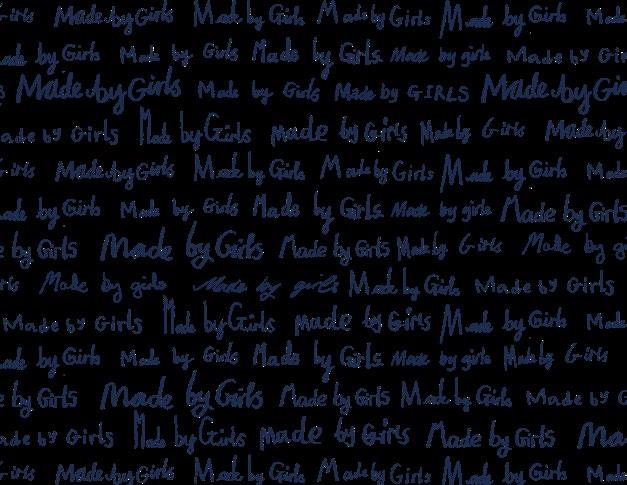 Girls Made by Girls Made by Girls Made by Girls Made by Girls Made
Made by Girls Made by Girls Made by Girls Made by girls Made by Gir
s Made by Girls Made by Girls Made by GIRLS Made by Gir
ade by Girls Made by Girls made by Girls Made by Girls Made by
Girls Made by Girls Made by Girls Made by Girls Made by Girls Made
Made by Girls Made by Girls Made by Girls Made by girls Made by Girls
e by Girls Made by Girls Made by Girls Made by Girls Made by gi
rls Made by girls Made by girls Made by Girls Made by Girls
Made by Girls Made by Girls made by Girls Made by Girls Made
Made by Girls Made by Girls Made by Girls Made by girls Made by Girls
e by Girls Made by Girls Made by Girls Made by Girls Made by G
ade by Girls Made by Girls made by Girls Made by Girls Ma
Girls Made by Girls Made by Girls Made by Girls Made by Girls Made